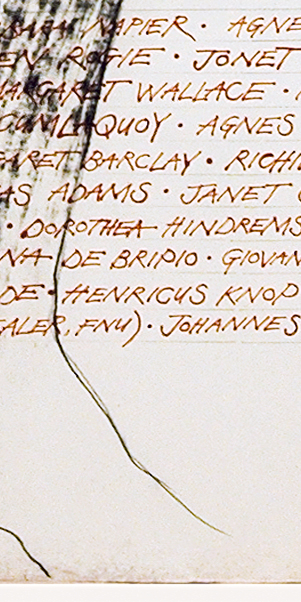 NAPIER · AGNE
EN ROGIE · JONET
MARGARET WALLACE ·
CUMLAQUOY · AGNES
GARET BARCLAY · RICHI
AS ADAMS · JANET
· DOROTHEA HINDREMS
NA DE BRIPIO · GIOVAN
DE · HENRICUS KNOP
EALER, FNU) · JOHANNES